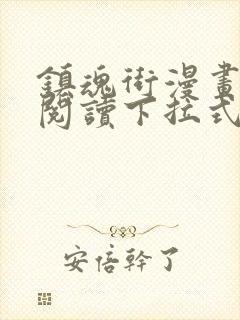 鎮魂街漫畫
閱讀下拉式
安倍幹了